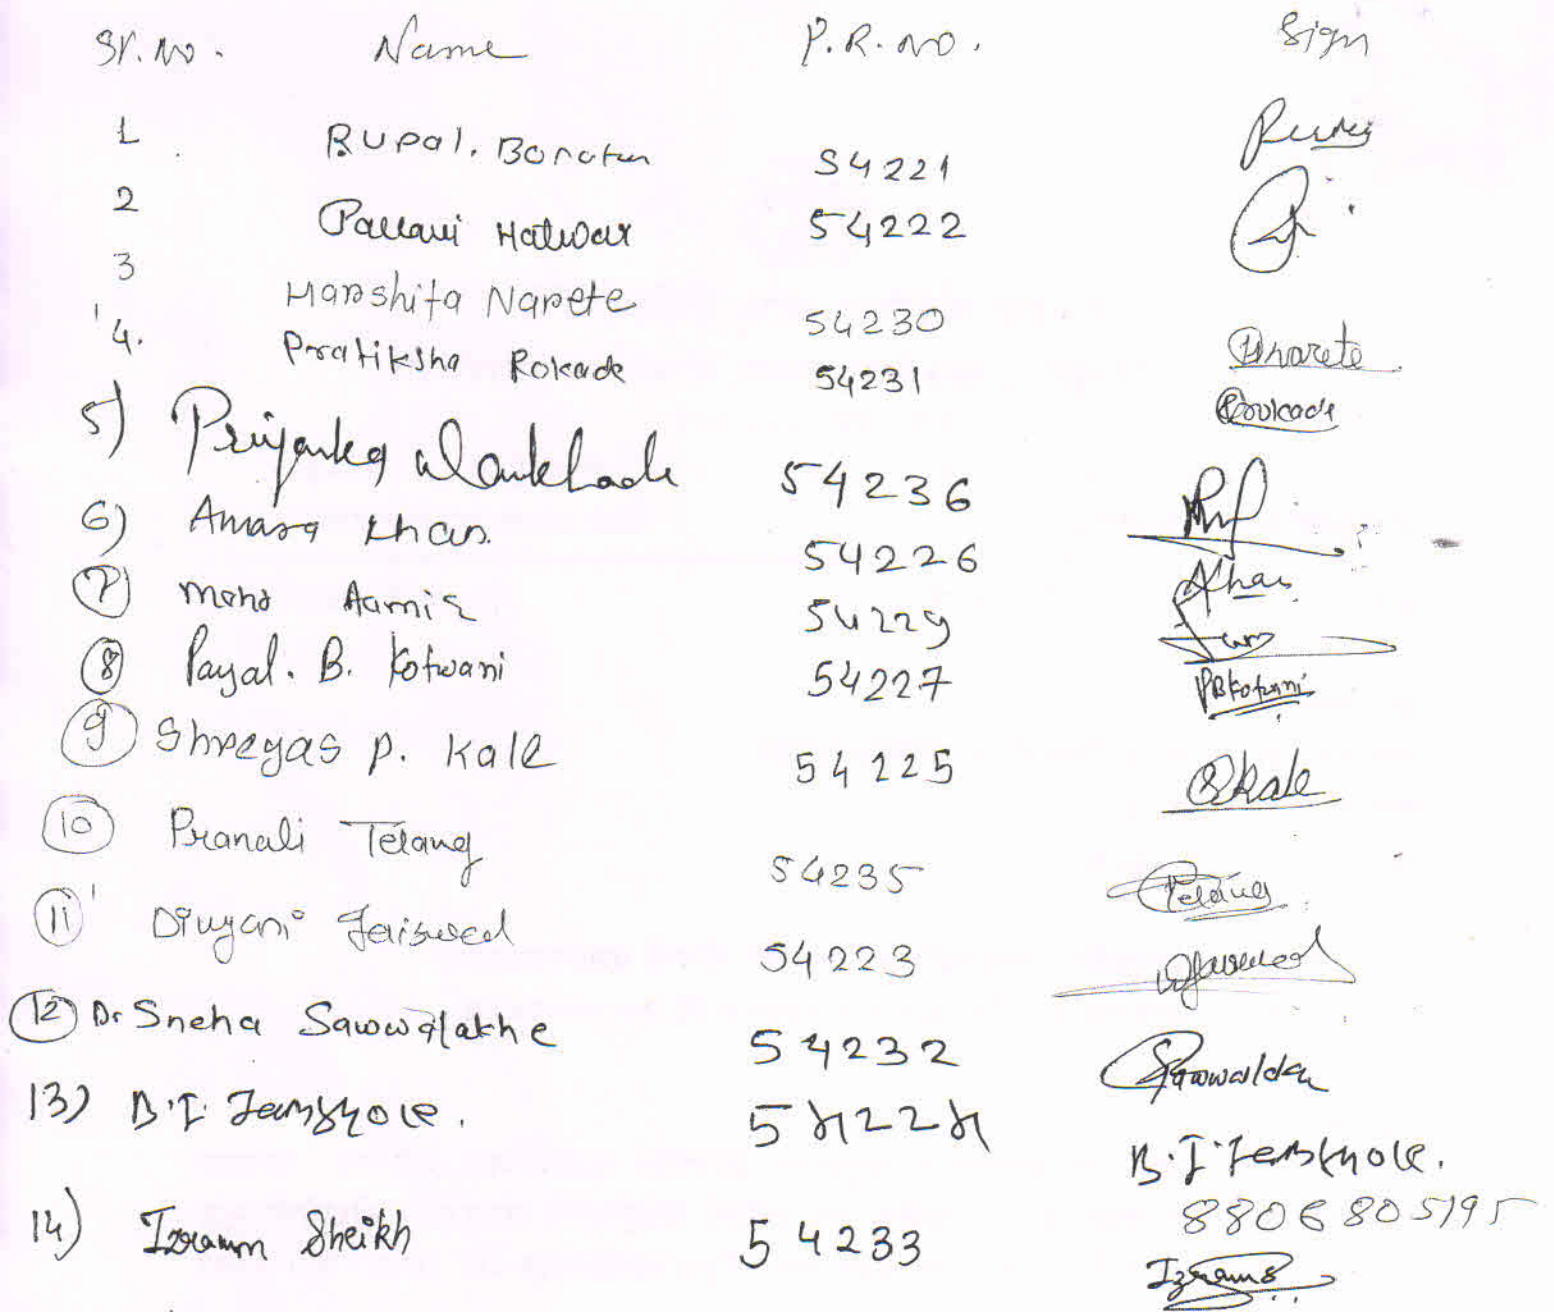 Sr. No. Name P.R. No. Sign
1 Rupal. 54221
2 Pallavi Halwar 54222
3 Harshita Narete 54230 HNarete
4. Pratiksha Rokade 54231 Prokade
5) Priyanka Wankhade 54236
6) Amara Khan. 54226 AKhan
7 Mohd Aamir 54229
8 Payal. B. Kotwani 54227 PBKotwani
9 Shreyas P. Kale 54225 SKale
10 Pranali Telang 54235 PTelang
11 Divyani Jaiswal 54223
12 Dr Sneha Sawwalakhe 54232
13) B.I. 54224 B.I.
8806805195
14) Izramm Sheikh 54233